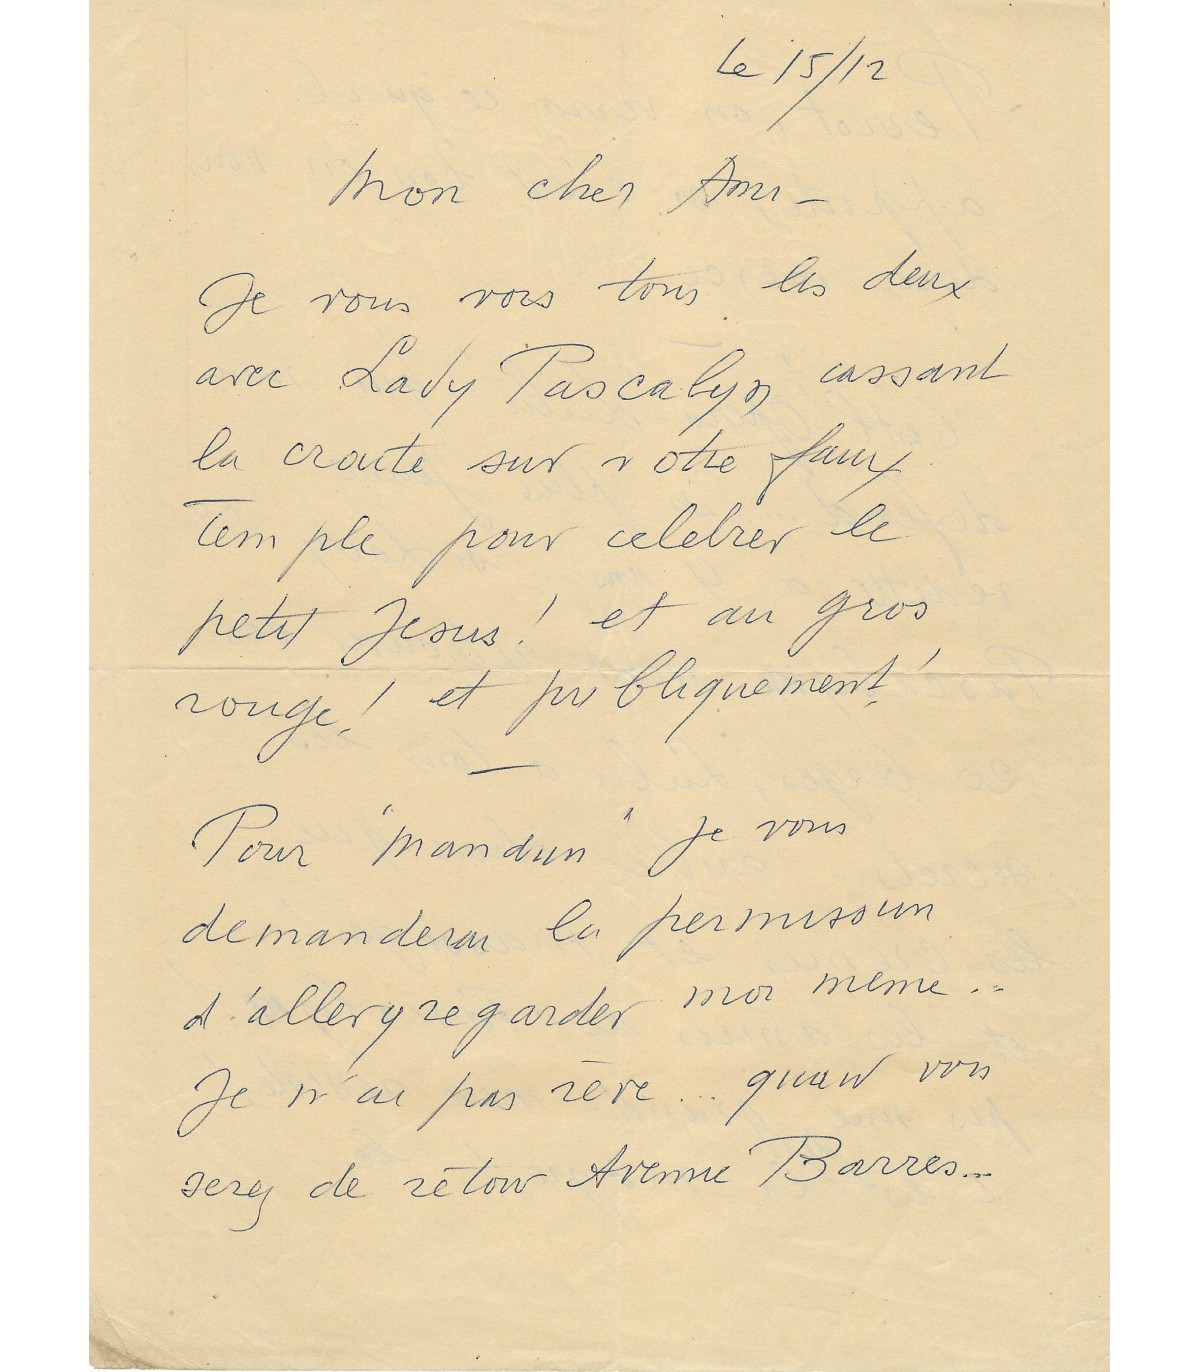 Le 15/12
Mon cher Ami -
Je vous vois tous les deux
avec Lady Pascalyn cassant
la croute sur votre faux
Temple pour celebrer le
petit Jesus! et au gros
rouge! et publiquement!
Pour "Mandun" je vous
demanderai la permission
d'aller y regarder moi meme..
Je n'ai pas rêvé... quand vous
serez de retour Avenue Barres...